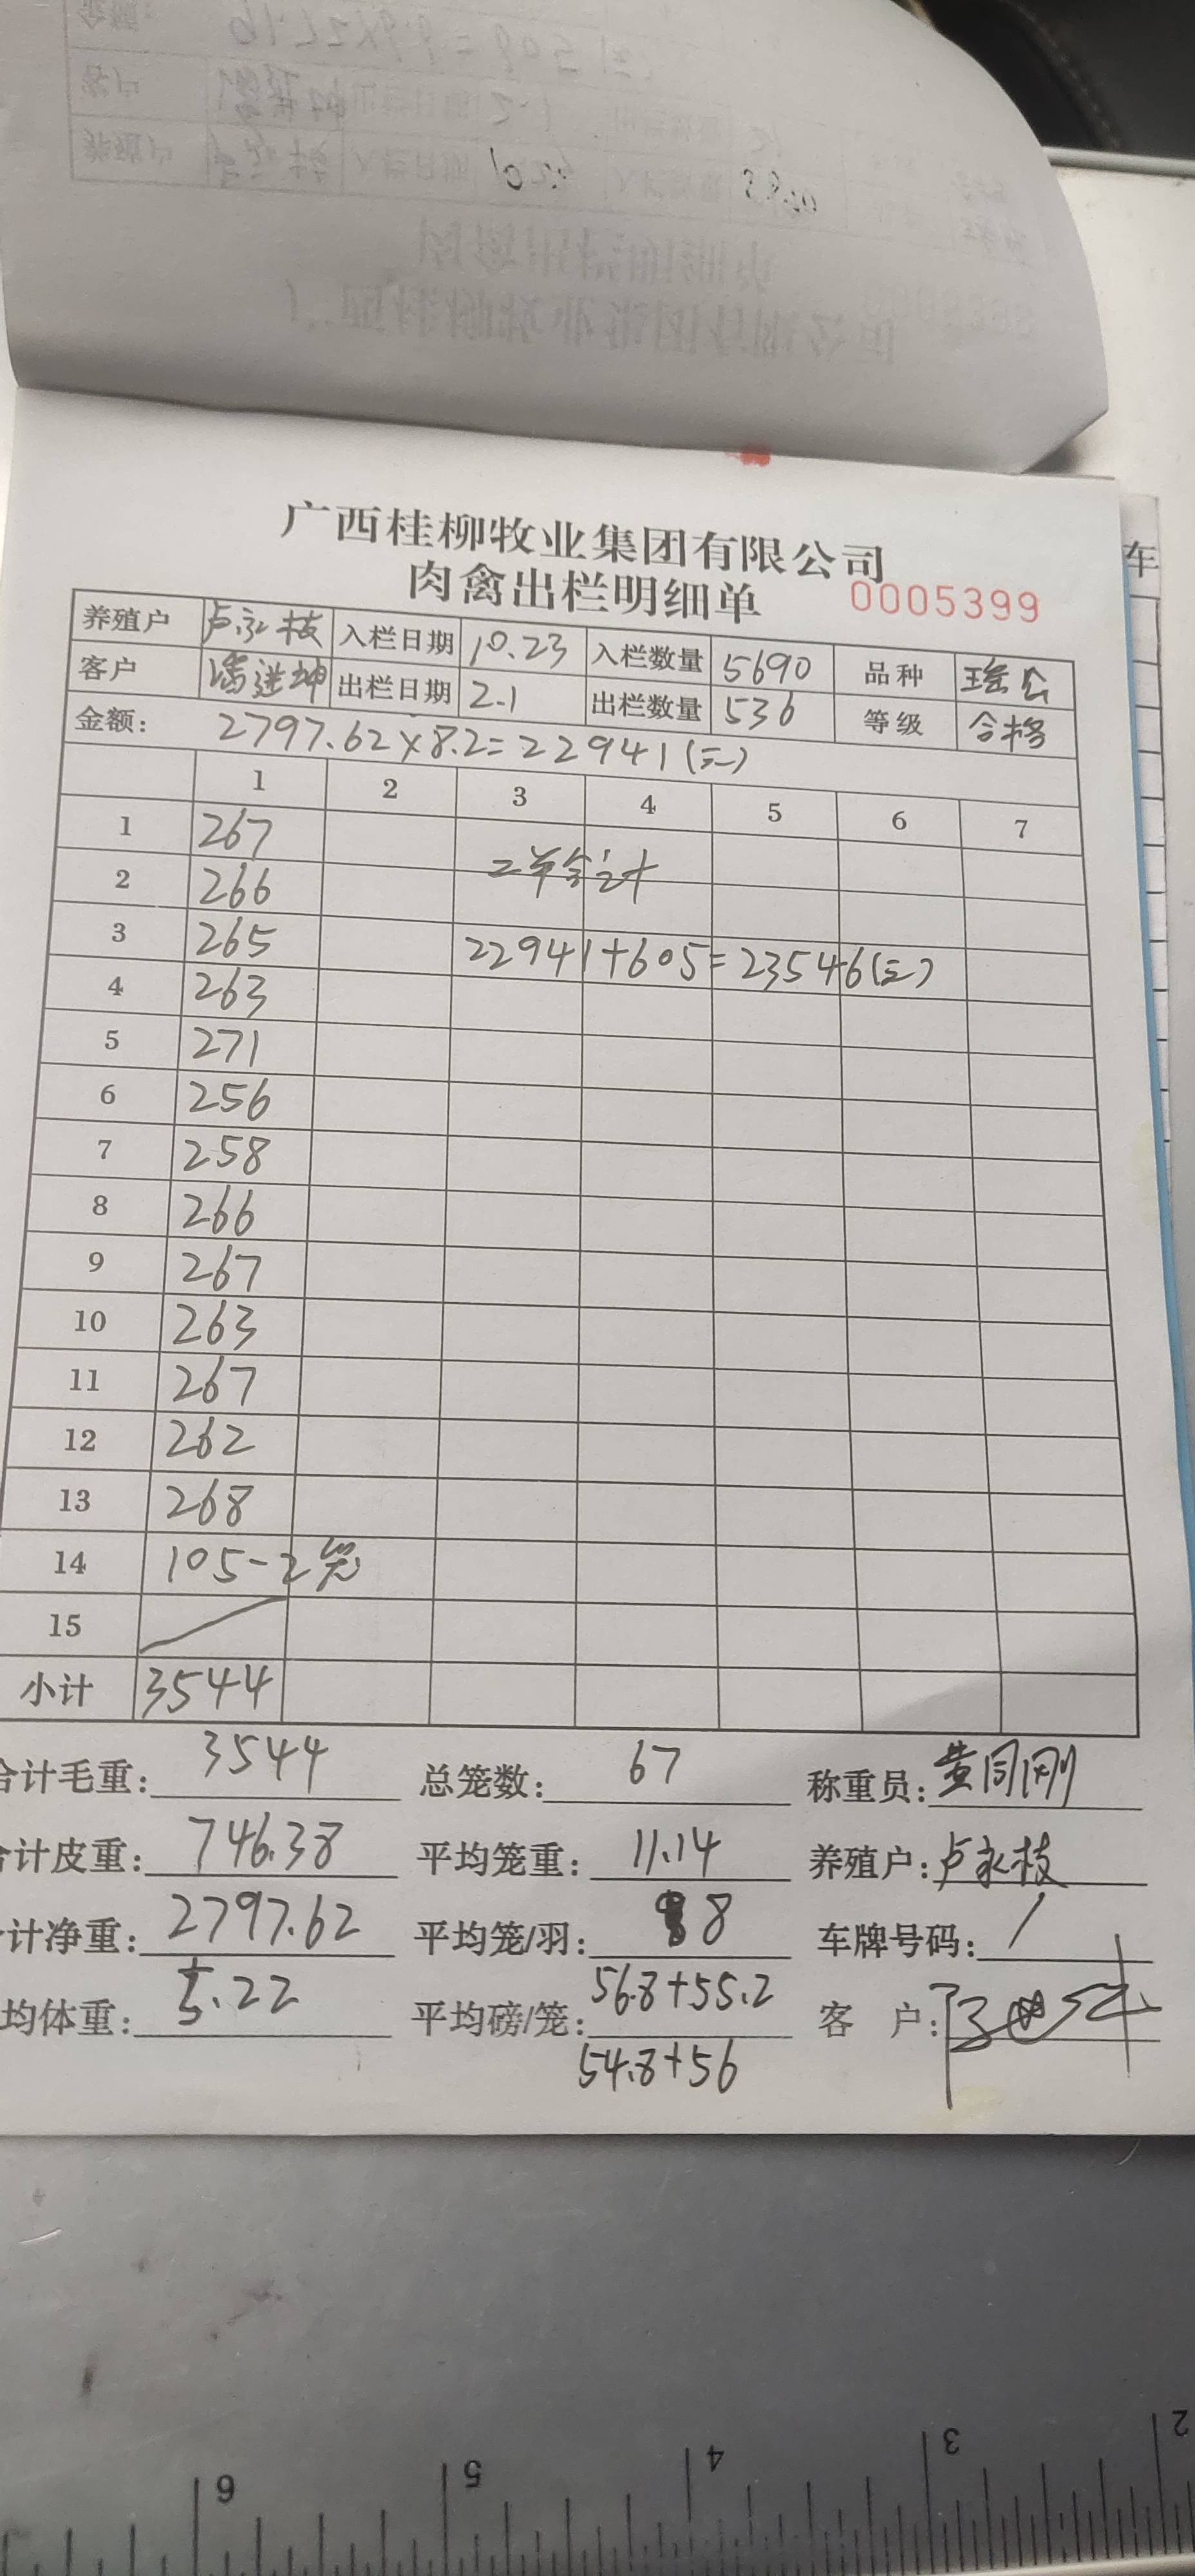 广西桂柳牧业集团有限公司
肉禽出栏明细单 0005399
养殖户 卢永枝 入栏日期 10.23 入栏数量 5690 品种 瑶公
客户 潘进坤 出栏日期 2.1 出栏数量 536 等级 合格
金额: 2797.62×8.2=22941(元)
1 2 3 4 5 6 7
1 267
2 266 二单合计
3 265 22941+605=23546(元)
4 263
5 271
6 256
7 258
8 266
9 267
10 263
11 267
12 262
13 268
14 105-2笼
15
小计 3544
合计毛重: 3544 总笼数: 67 称重员: 黄同刚
计皮重: 746.38 平均笼重: 11.14 养殖户: 卢永枝
计净重: 2797.62 平均笼/羽: 8 车牌号码: /
均体重: 5.22 平均磅/笼: 56.8+55.2 客户:
54.8+56
车
6 5 4 3 2